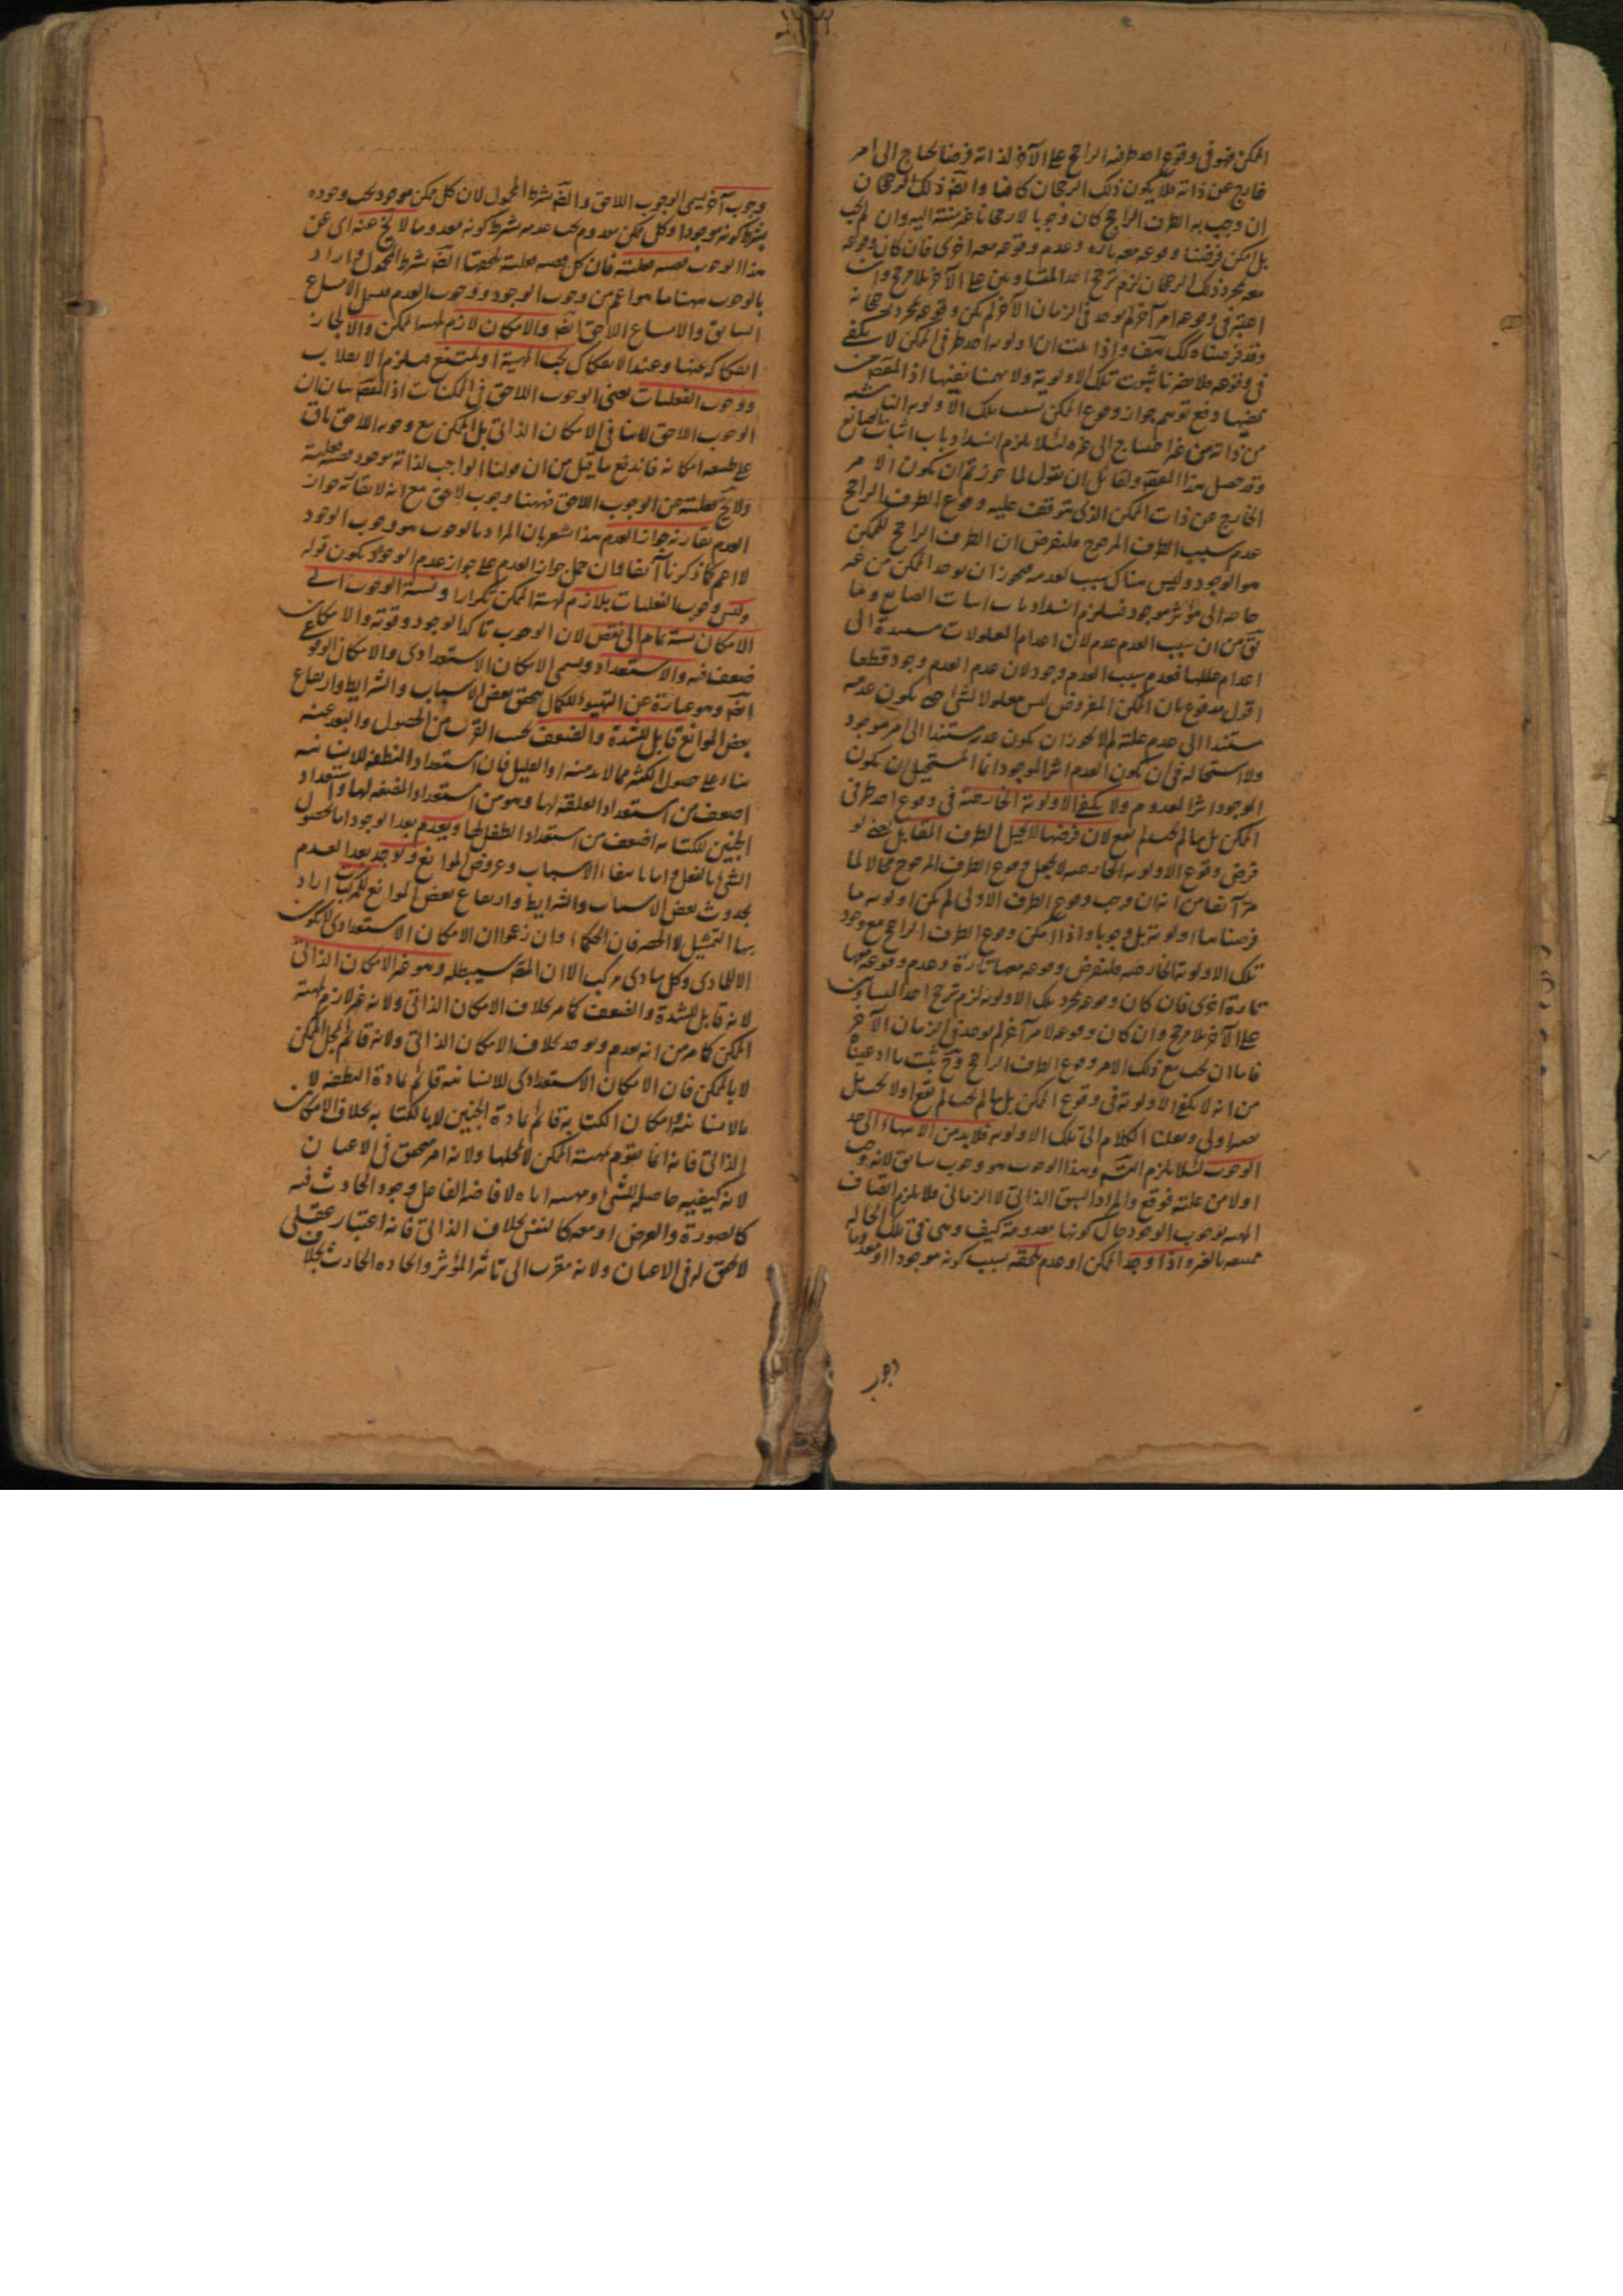 الممكن فهو فى وقوع احد طرفيه الراجح على الآخر لذاته فرضا محتاج الى امر
خارج عن ذاته فلا يكون ذلك الرجحان كافيا وايضا ذلك الرجحان
ان وجب به الطرف الراجح كان وجوبا لا رجحانا غير منته اليه وان لم يجب
بل امكن فرضنا وقوعه معه تارة وعدم وقوعه معه اخرى فان كان وقوعه
معه بمجرد ذلك الرجحان لزم ترجح احد المتساويين على الآخر بلا مرجح وان
اعتبر فى وقوعه امر آخر لم يوجد فى الزمان الآخر لم يكن وقوعه بمجرد رجحانه
وقد فرضناه كك هف واذا ثبت ان اولوية احد طرفى الممكن لا يكفى
فى وقوعه فلا يضرنا ثبوت تلك الاولوية ولا يهمنا نفيها اذ المقصود من
نفيها دفع توهم جواز وقوع الممكن بسبب تلك الاولوية الناشية
من ذاته من غير احتياج الى غيره لئلا يلزم انسداد باب اثبات الصانع
وقد حصل هذا المقصود ولقائل ان يقول لما جوزتم ان يكون الامر
الخارج عن ذات الممكن الذى يتوقف عليه وقوع الطرف الراجح
عدم سبب الطرف المرجوح فلنفرض ان الطرف الراجح للممكن
هو الوجود وليس هناك سبب لعدمه فيجوز ان يوجد الممكن من غير
حاجة الى مؤثر موجود فيلزم انسداد باب اثبات الصانع وما
يق من ان سبب العدم عدم لان اعدام المعلولات مستندة الى
اعدام عللها فعدم سبب العدم وجود لان عدم العدم وجود قطعا
اقول مدفوع بان الممكن المفروض ليس معلولا لشئ حتى يكون عدمه
مستندا الى عدم علته لم لا يجوز ان يكون عدمه مستندا الى امر موجود
ولا استحالة فى ان يكون العدم اثرا للموجود انما المستحيل ان يكون
الموجود اثرا للمعدوم ولا يكفى الاولوية الخارجية فى وقوع احد طرفى
الممكن بل ما لم يجب لم يقع لان فرضها لا يحيل الطرف المقابل يعنى لو
فرض وقوع الاولوية الخارجية لا يجعل وقوع الطرف المرجوح محالا لما
مر آنفا من انه ان وجب وقوع الطرف الاولى لم يكن اولوية ما
فرضناها اولوية بل وجوبا واذا امكن وقوع الطرف الراجح مع وجود
تلك الاولوية الخارجية فلنفرض وقوعه معها تارة وعدم وقوعه معها
تارة اخرى فان كان وقوعه بمجرد تلك الاولوية لزم ترجح احد المتساويين
على الآخر بلا مرجح وان كان وقوعه لامر آخر لم يوجد فى الزمان الآخر
فاما ان يجب مع ذلك الامر وقوع الطرف الراجح وح يثبت ما ادعيناه
من انه لا يكفى الاولوية فى وقوع الممكن بل ما لم يجب لم يقع او لا يجب بل
يصير اولى ونقلنا الكلام الى تلك الاولوية فلا بد من الانتهاء الى حد
الوجوب لئلا يلزم التسلسل وهذا الوجوب هو وجوب سابق لانه وجب
اولا من علته فوقع والمراد السبق الذاتى لا الزمانى فلا يلزم اتصاف
المهية بوجوب الوجود حال كونها معدومة كيف وهى فى تلك الحالة
ممتنعة بالغير واذا وجد الممكن او عدم يلحقه بسبب كونه موجودا او معدوما
وجوب
وجوب آخر يسمى الوجوب اللاحق وايضا بشرط المحمول لان كل ممكن موجود يجب وجوده
بشرط كونه موجودا وكل ممكن معدوم يجب عدمه بشرط كونه معدوما لا يخ عنه اى عن
هذا الوجوب قضية فعلية فان كل قضية فعلية يلحقها ايضا بشرط المحمول واراد
بالوجوب ههنا ما هو اعم من وجوب الوجود ووجوب العدم فيشمل الامتناع
السابق والامتناع اللاحق ايضا والامكان لازم لمهية الممكن والا لجاز
انفكاكه عنها وعند الانفكاك يجب المهية او تمتنع فيلزم الانقلاب
ووجوب الفعليات يعنى الوجوب اللاحق فى الممكنات اذ المقصود بيان ان
الوجوب اللاحق لا ينافى الامكان الذاتى بل الممكن مع وجوبه اللاحق باق
على طبيعة امكانه فاندفع ما قيل من ان قولنا الواجب لذاته موجود قضية فعلية
ولا يخ فعلية عن الوجوب اللاحق فههنا وجوب لاحق مع انه لا يقارنه جواز
العدم يقارنه جواز العدم هذا يشعر بان المراد بالوجوب هو وجوب الوجود
لا اعم كما ذكرنا آنفا وان حمل جواز العدم على جواز عدم الوجوب يكون قوله
وليس وجوب الفعليات بلازم لمهية الممكن تكرارا ونسبة الوجوب الى
الامكان نسبة تمام الى نقص لان الوجوب تاكد الوجود وقوته والامكان
ضعف فيه والاستعداد ويسمى الامكان الاستعدادى والامكان الوقوعى
ايضا وهو عبارة عن التهيؤ للكمال بتحقق بعض الاسباب والشرايط وارتفاع
بعض الموانع قابل للشدة والضعف بحسب القرب من الحصول والبعد عنه
بناء على حصول الكثير مما لا بد منه او القليل فان استعداد النطفة للانسانية
اضعف من استعداد العلقة لها وهو من استعداد المضغة لها واستعداد
الجنين للكتابة اضعف من استعداد الطفل لها ويعدم بعد الوجود اما بحصول
الشئ بالفعل واما بانتفاء الاسباب وعروض الموانع ويوجد بعد العدم
بحدوث بعض الاسباب والشرايط وارتفاع بعض الموانع للمركبات اراد
بها التمثيل لا الحصر فان الحكماء وان زعموا ان الامكان الاستعدادى لا يكون
الا لمادى وكل مادى مركب الا ان المصنف سيبطله وهو غير الامكان الذاتى
لانه قابل للشدة والضعف كما مر بخلاف الامكان الذاتى ولانه غير لازم لمهية
الممكن كما مر من انه يعدم ويوجد بخلاف الامكان الذاتى ولانه قائم بمحل الممكن
لا بالممكن فان الامكان الاستعدادى للانسانية قائم بمادة النطفة لا
بالانسانية وامكان الكتابة قائم بمادة الجنين لا بالكتابة بخلاف الامكان
الذاتى فانه انما يقوم بمهية الممكن لا بمحلها ولانه امر متحقق فى الاعيان
لانه كيفية حاصلة للشئ مهيئة اياه لافاضة الفاعل وجود الحادث فيه
كالصورة والعرض او معه كالنفس بخلاف الذاتى فانه اعتبار عقلى
لا تحقق له فى الاعيان ولانه مقرب الى تاثير المؤثر وايجاده الحادث بخلاف